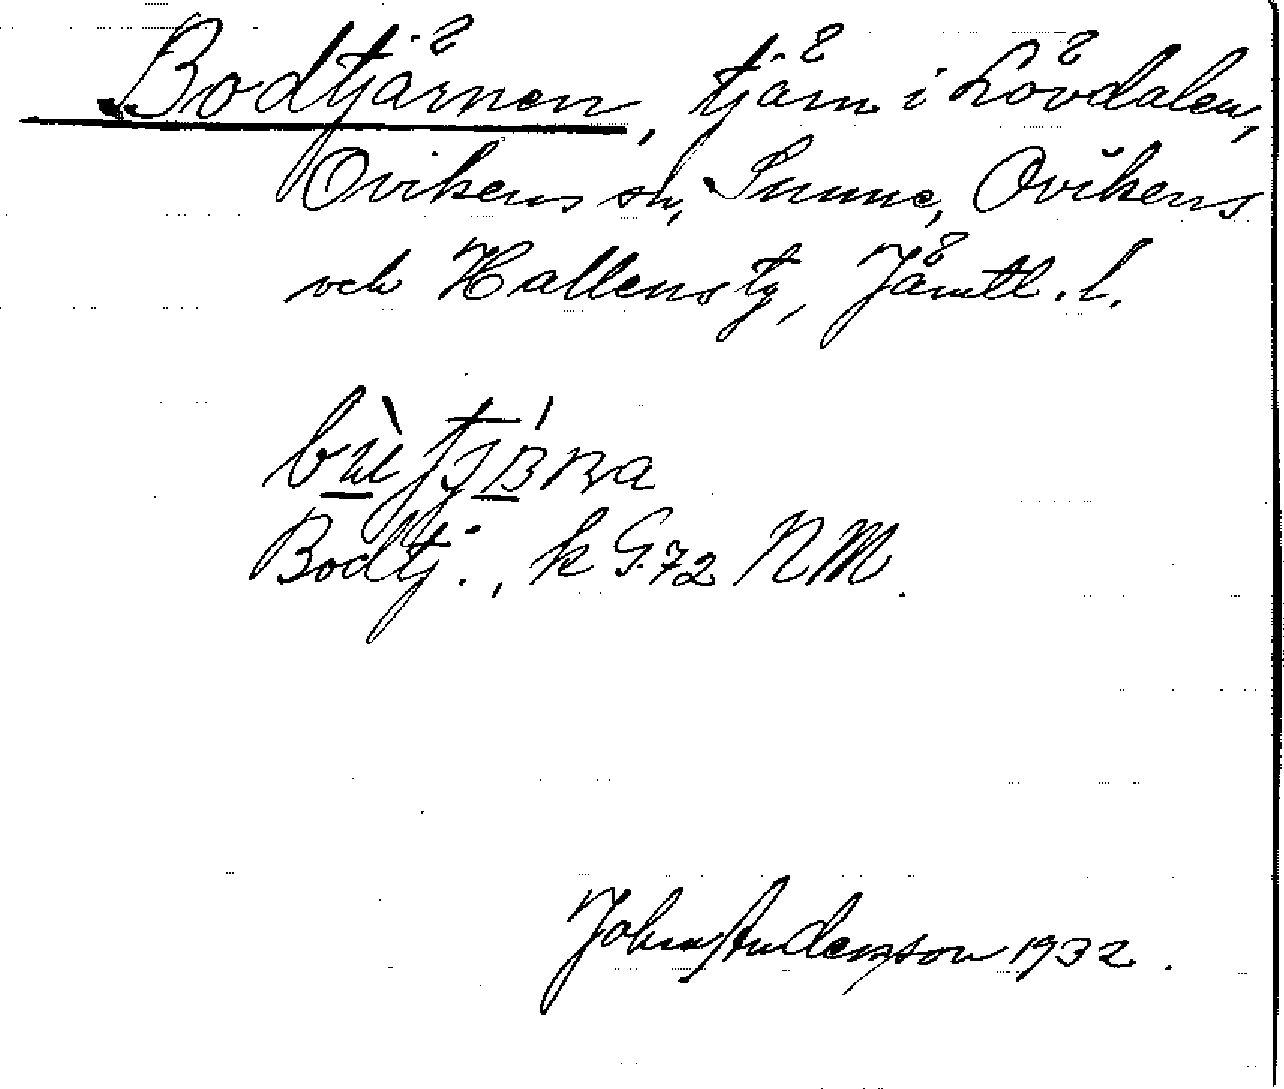 Bodtjärnen, tjärn i Lövdalen,
Ovikens sn, Sunne, Ovikens
och Hallens tg, Jämtl. l.
Bodtj., k G.72 NM.
John Anderson 1932.